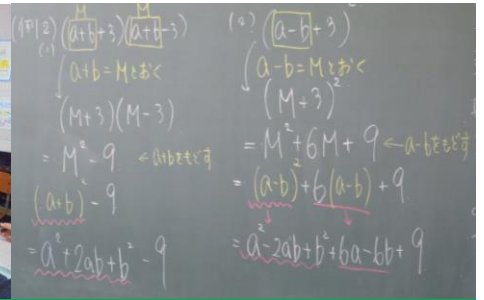 M M
(例12) (1) (a+b+3)(a+b-3)
a+b=Mとおく
(M+3)(M-3)
=M²-9 ←a+bをもどす
(a+b)²-9
=a²+2ab+b²-9
(2) (a-b+3)²
a-b=Mとおく
(M+3)²
=M²+6M+9 ←a-bをもどす
=(a-b)²+6(a-b)+9
=a²-2ab+b²+6a-6b+9